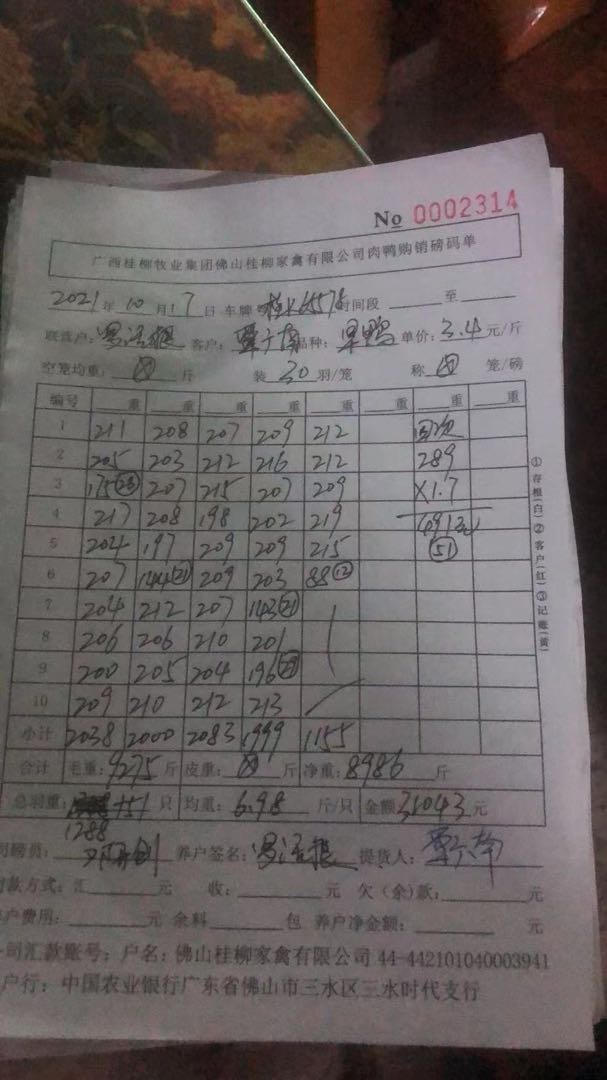 No 0002314
广西桂柳牧业集团佛山桂柳家禽有限公司肉鸭购销磅码单
2021年10月17日 车牌 时间段 至
联营户: 客户: 品种: 单价: 3.4 元/斤
空笼均重: 斤 装 30 羽/笼 称 笼/磅
编号 重 重 重 重 重 重 重
1 211 208 207 209 212 回次
2 205 203 212 216 212 289
3 175 (26) 207 215 207 209 X1.7
4 217 208 198 202 219
5 204 197 209 209 215 (51)
6 207 144 (21) 209 203 88 (12)
7 204 212 207 143 (21)
8 206 206 210 201
9 200 205 204 196
10 209 210 212 213
小计 2038 2000 2083 1999 1155
合计 毛重: 9275 斤 皮重: 斤 净重: 8986 斤
总羽重: +51 只 均重: 6.98 斤/只 金额 31043 元
1288
司磅员: 养户签名: 提货人:
付款方式: 汇 元 收: 元 欠(余)款: 元
养户费用: 元 余料 包 养户净金额: 元
司汇款账号: 户名: 佛山桂柳家禽有限公司 44-442101040003941
户行: 中国农业银行广东省佛山市三水区三水时代支行
①存根(白)②客户(红)③记账(黄)